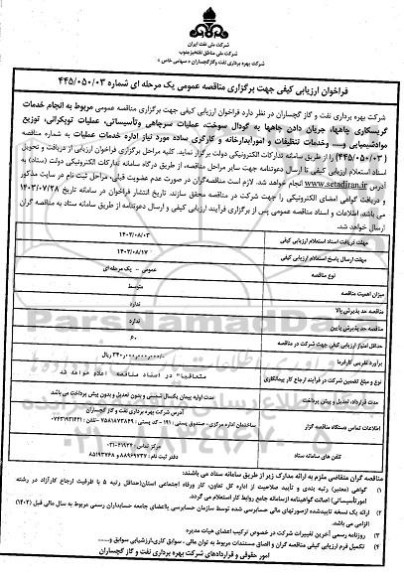 شرکت ملی نفت ایران
شرکت ملی مناطق نفتخیز جنوب
شرکت بهره برداری نفت و گاز گچساران «سهامی خاص»
فراخوان ارزیابی کیفی جهت برگزاری مناقصه عمومی یک مرحله ای شماره ۴۴۵/۰۵۰/۰۳
شرکت بهره برداری نفت و گاز گچساران در نظر دارد فراخوان ارزیابی کیفی جهت برگزاری مناقصه عمومی مربوط به انجام خدمات
گریسکاری چاهها، جریان دادن چاهها به گودال سوخت، عملیات سرچاهی وتأسیساتی، عملیات توپکرانی، توزیع
موادشیمیایی و... وخدمات تنظیفات و امورآبدارخانه و کارگری ساده مورد نیاز اداره خدمات عملیات به شماره مناقصه
(۴۴۵/۰۵۰/۰۳) را از طریق سامانه تدارکات الکترونیکی دولت برگزار نماید. کلیه مراحل برگزاری فراخوان ارزیابی از دریافت و تحویل
اسناد استعلام ارزیابی کیفی تا ارسال دعوتنامه جهت سایر مراحل مناقصه، از طریق درگاه سامانه تدارکات الکترونیکی دولت (ستاد) به
آدرس www.setadiran.ir انجام خواهد شد. لازم است مناقصه‌گران در صورت عدم عضویت قبلی، مراحل ثبت نام در سایت مذکور
و دریافت گواهی امضای الکترونیکی را جهت شرکت در مناقصه محقق سازند. تاریخ انتشار فراخوان در سامانه تاریخ ۱۴۰۳/۰۷/۲۸
می باشد. اطلاعات و اسناد مناقصه عمومی پس از برگزاری فرآیند ارزیابی کیفی و ارسال دعوتنامه از طریق سامانه ستاد به مناقصه گران
ارسال خواهد شد.
مهلت دریافت اسناد استعلام ارزیابی کیفی ۱۴۰۳/۰۸/۰۳
مهلت ارسال پاسخ استعلام ارزیابی کیفی ۱۴۰۳/۰۸/۱۷
نوع مناقصه عمومی - یک مرحله‌ای
میزان اهمیت مناقصه متوسط
مناقصه حد پذیرش بالا ندارد
مناقصه حد پذیرش پایین ندارد
حداقل امتیاز ارزیابی کیفی جهت شرکت در مناقصه ۶۰
برآورد تقریبی کارفرما ریال
نوع و مبلغ تضمین شرکت در فرآیند ارجاع کار پیمانکاری متعاقبا" در اسناد مناقصه اعلام خواهد شد
مدت قرارداد، تعدیل و پیش پرداخت مدت اولیه پیمان یکسال شمسی و بدون تعدیل و بدون پیش پرداخت می باشد
اطلاعات تماس دستگاه مناقصه گزار آدرس شرکت بهره برداری نفت و گاز گچساران
ساختمان اداره مرکزی - صندوق پستی: ۱۹۱ - کد پستی:
تلفن های سامانه ستاد مرکز تماس: ۰۲۱-۴۱۹۳۴
دفتر ثبت نام: ۸۸۹۶۹۷۳۷ و ۸۵۱۹۳۷۶۸
مناقصه گران متقاضی ملزم به ارائه مدارک زیر از طریق سامانه ستاد می باشند:
۱) گواهی (معتبر) رتبه بندی و تأیید صلاحیت از اداره کل تعاون، کار ورفاه اجتماعی استان(حداقل رتبه ۵ با ظرفیت ارجاع کارآزاد در رشته
امورتأسیساتی) اصالت گواهینامه ازسامانه جامع روابط کار استعلام می گردد.
۲) ارائه یک نسخه تاییدشده ازصورتهای مالی حسابرسی شده توسط سازمان حسابرسی یااعضای جامعه حسابداران رسمی مربوط به سال مالی قبل (۱۴۰۲)
الزامی می باشد.
۳) روزنامه رسمی آخرین تغییرات شرکت در خصوص ترکیب اعضای هیات مدیره
۴) تکمیل فرم ارزیابی کیفی مناقصه گران و الصاق مستندات مربوط به توان مالی، سوابق کاری،ارزشیابی سوابق و.....
امور حقوقی و قراردادهای شرکت بهره برداری نفت و گاز گچساران